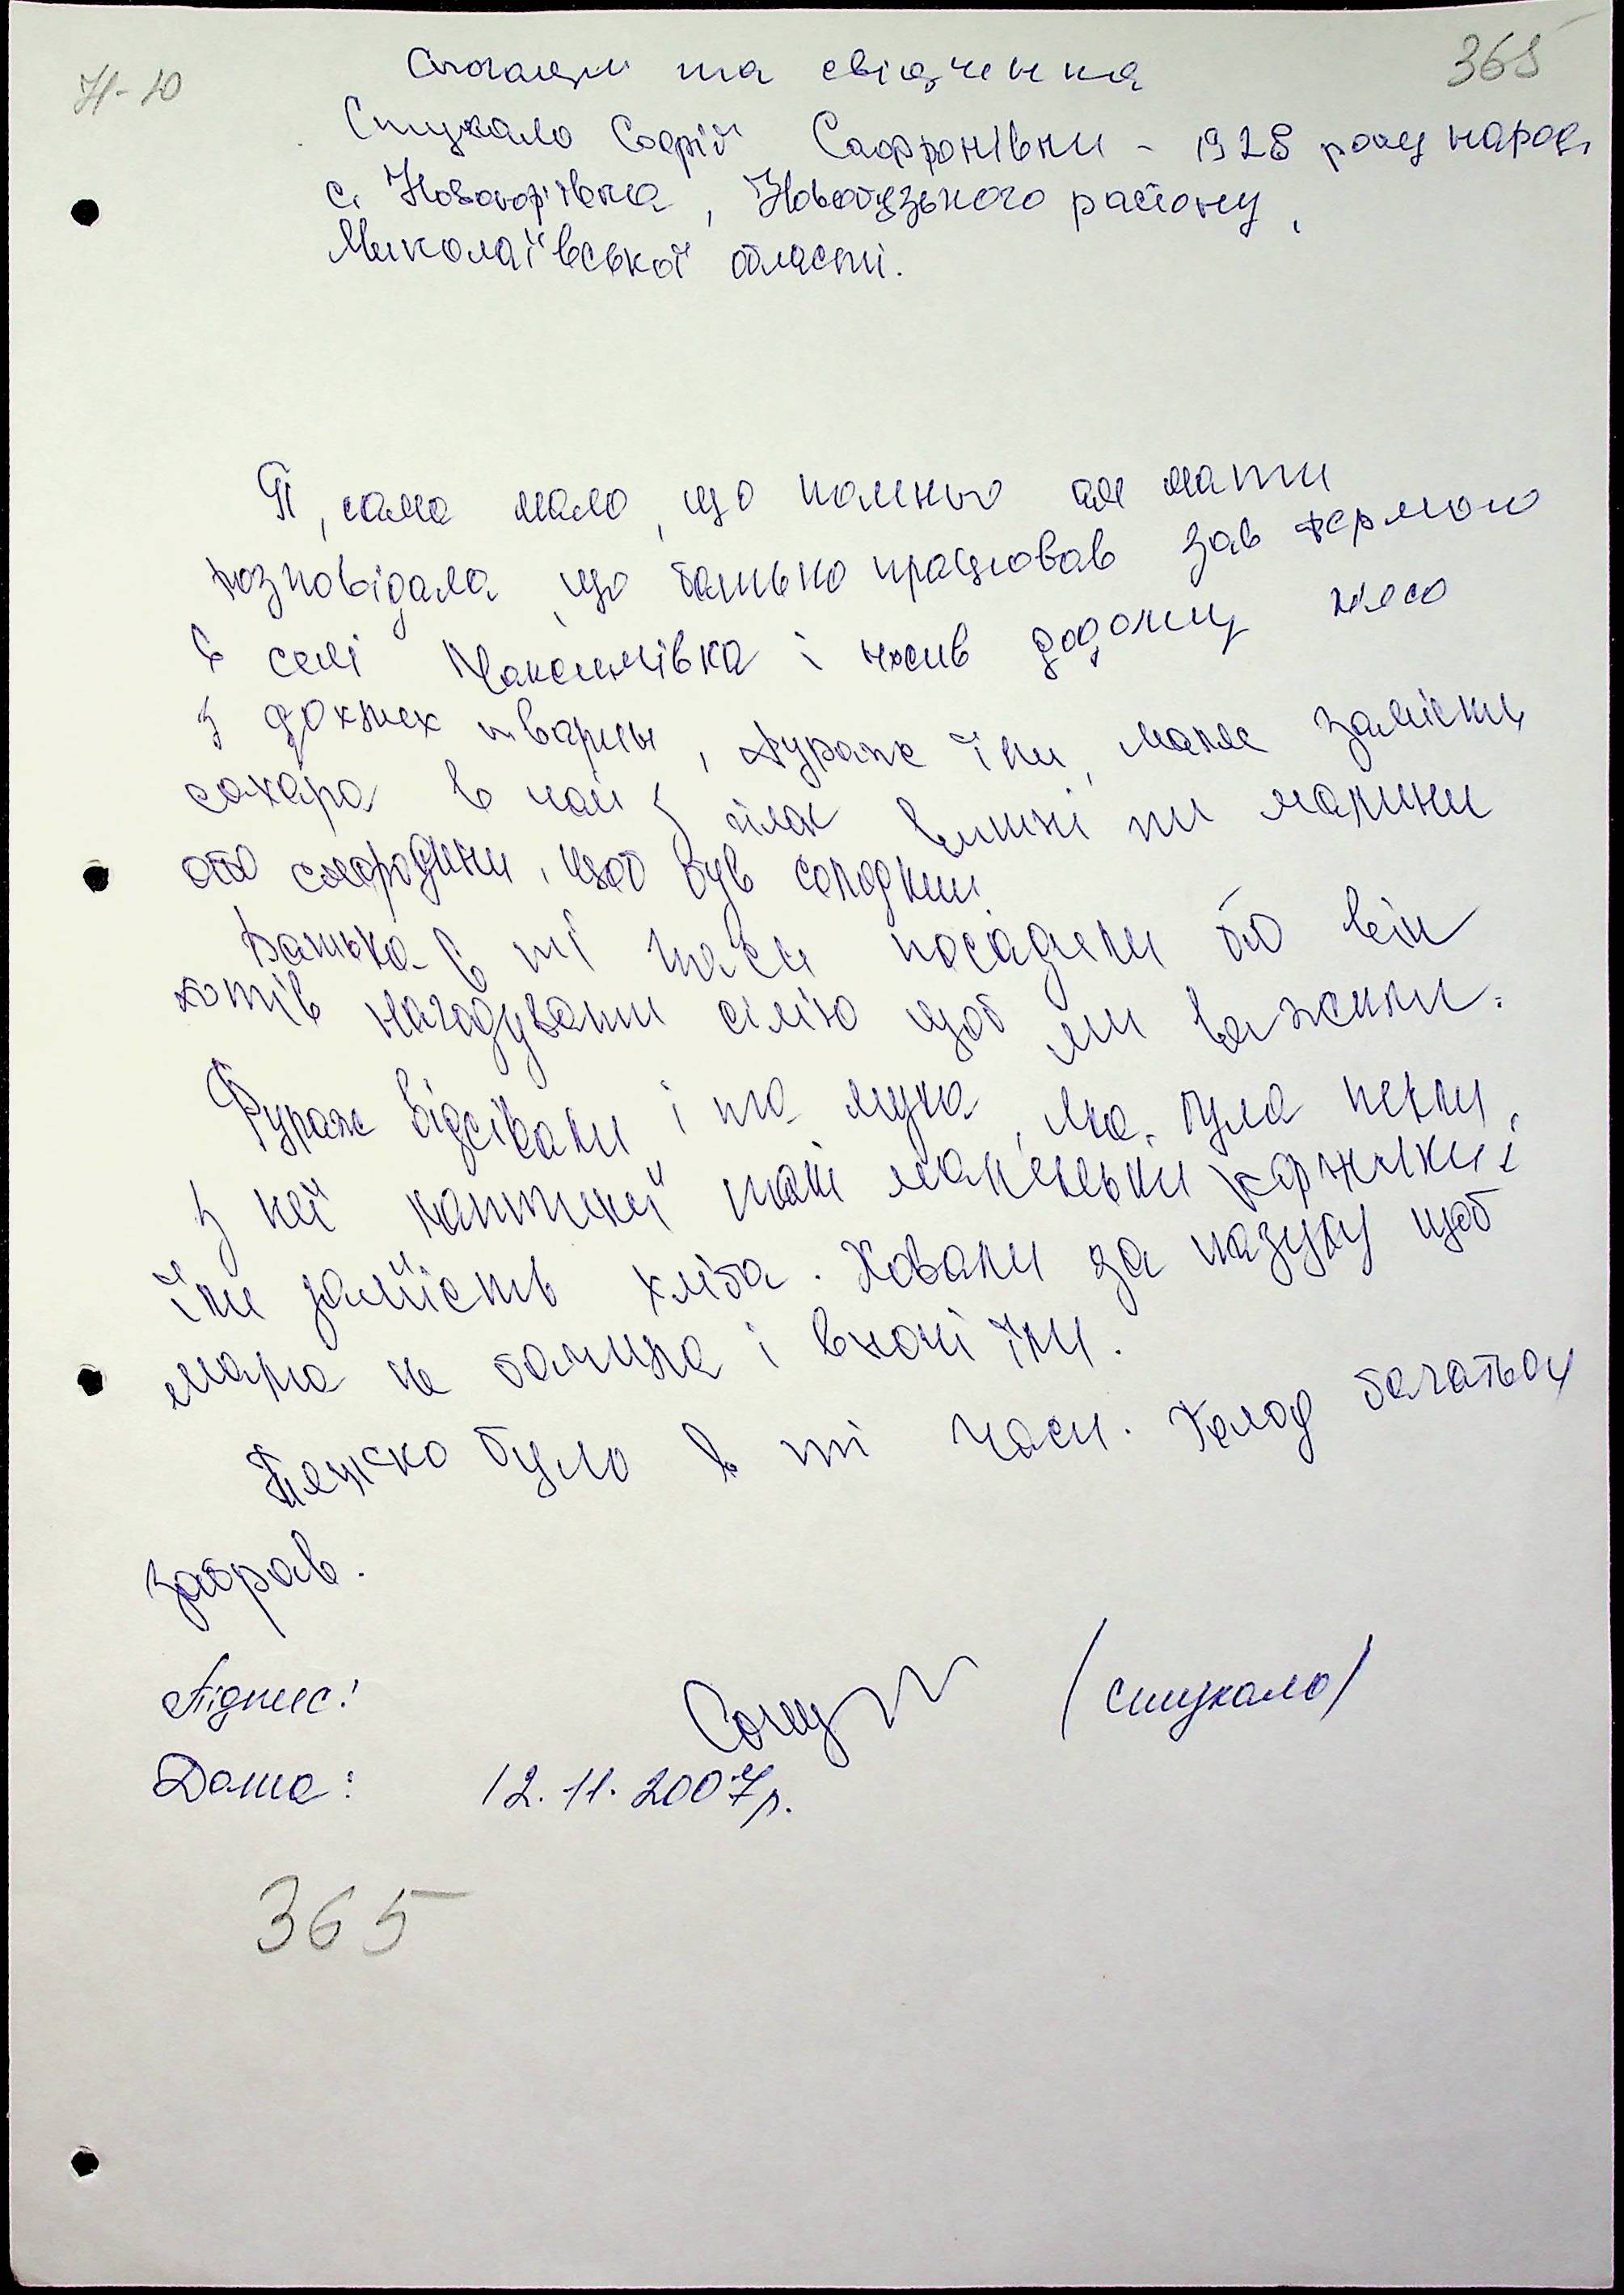 Н-10
365
Спогади та свідчення
Стукало Софії Сафронівни - 1928 року народ.
с. Новоюр'ївка, Новобузького району,
Миколаївської області.
Я, сама мало, що помню але мати
розповідала що батько працював зав фермою
в селі Максимівка і носив додому мясо
з дохлих тварин, фураж їли, мама замість
сахара в чай з гілок вишні чи малини
або смородини, щоб був солодкий.
Батька в ті часи посадили бо він
хотів нагодувати сімю щоб ми вижили.
Фураж відсівали і та мука, яка була пекли
з неї такі маленькі коржики і
їли замість хліба. Ховали за пазуху щоб
мама не бачила і вночі їли.
Тяжко було в ті часи. Голод багатьох
забрав.
Підпис:
(Стукало)
Дата: 12.11.2007р.
365